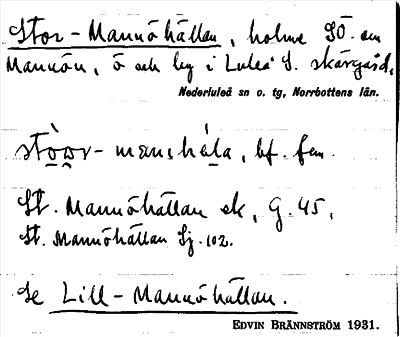 Stor-Mannöhällan, holme SÖ. om
Mannön, ö och by i Luleå S. skärgård,
Nederluleå sn o. tg, Norrbottens län.
stò̬o̬r-manshála, bf. fem.
St. Mannöhällan ek, G. 45.
St. Mannöhällan Sj. 102.
Se Lill-Mannöhällan.
EDVIN BRÄNNSTRÖM 1931.